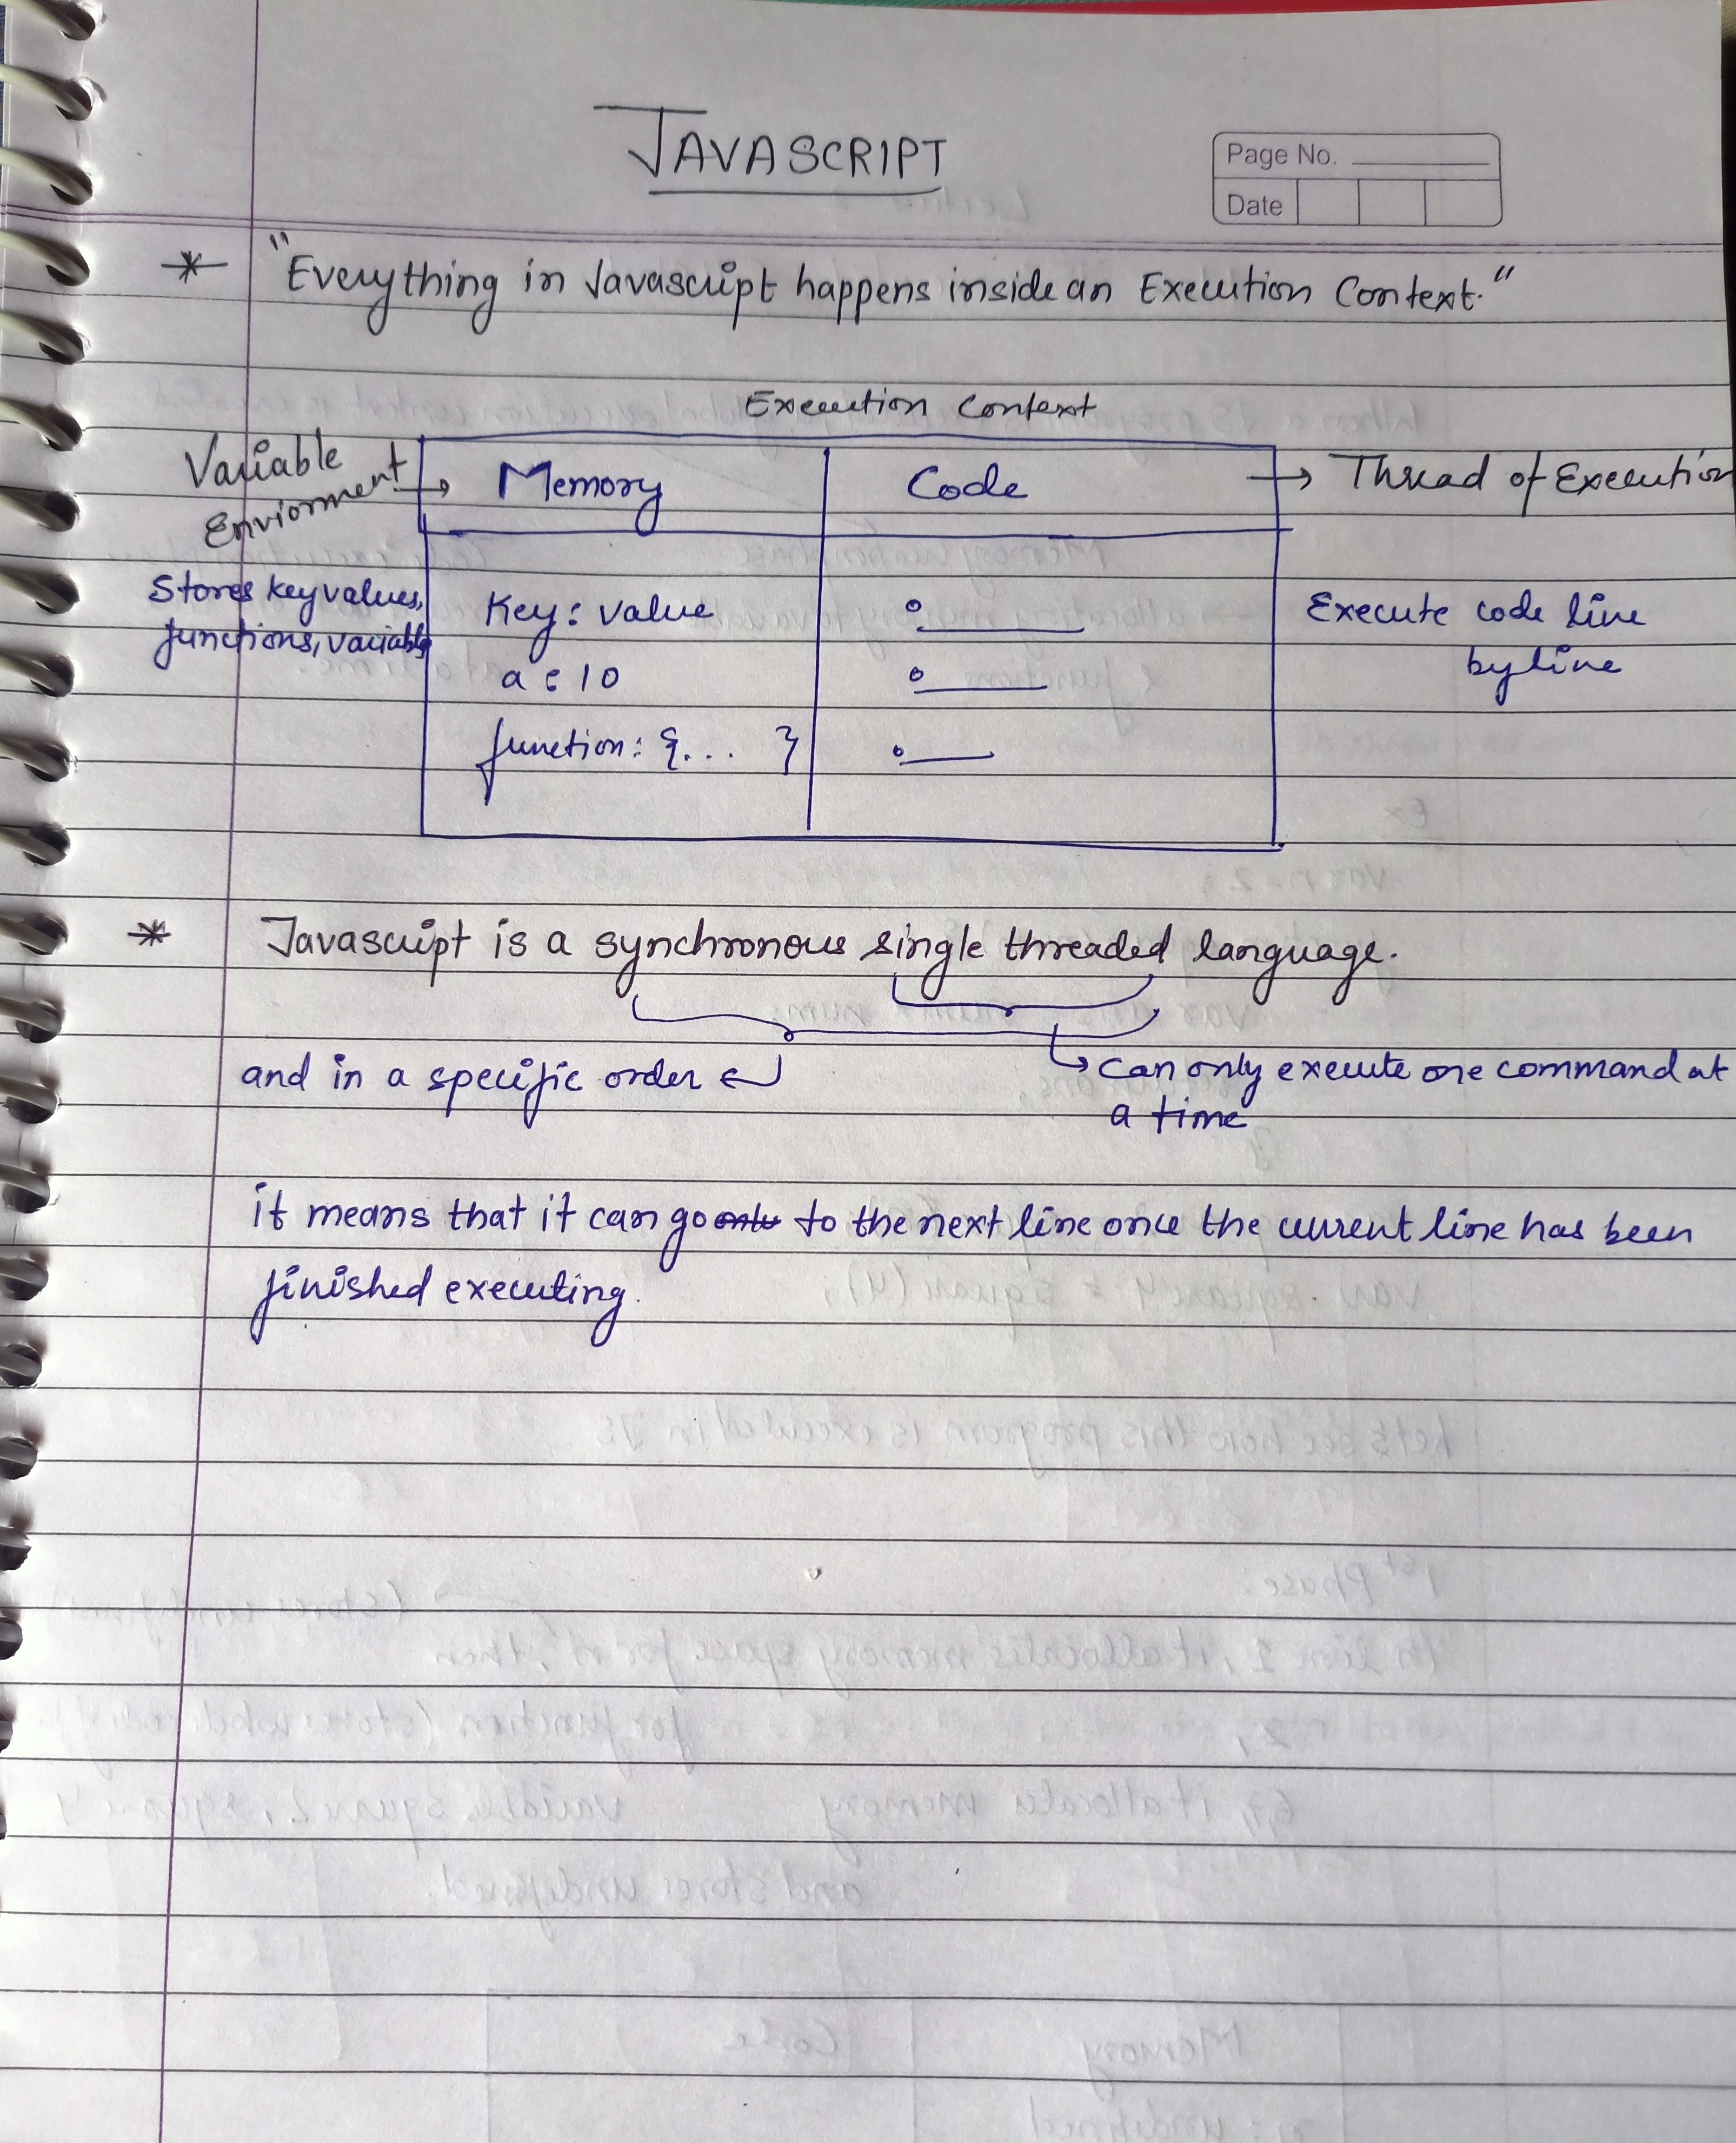 JAVASCRIPT
Page No.
Date
* "Everything in Javascript happens inside an Execution Context."
Execution Context
Variable Enviorment → Memory
Code → Thread of Execution
Stores key values,
functions, variable
Key: value
a : 10
function: {... }
Execute code line
by line
* Javascript is a synchronous single threaded language.
and in a specific order
can only execute one command at
a time
it means that it can go only to the next line once the current line has been
finished executing.